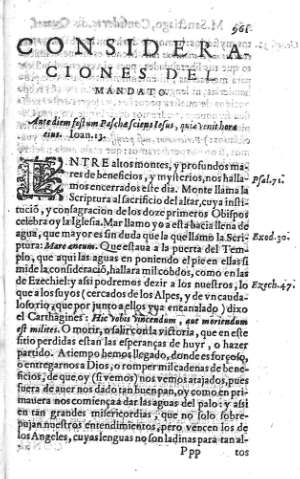 961
CONSIDERA
CIONES DEL
MANDATO.
Ante diem festum Paschæ sciens Iesus, quia venit hora
eius. Ioan. 13.
ENTRE altos montes, y profundos ma
res de beneficios, y mysterios, nos halla
mos encerrados este dia. Monte llama la
Scriptura al sacrificio del altar, cuya insti
tució, y consagracion de los doze primeros Obispos
celebra oy la Iglesia. Mar llamo yo a esta bacia llena de
agua, que mayor es sin duda que la que llamo la Scri-
ptura: Mare æneum. Que estaua a la puerta del Tem
plo, que aqui las aguas en poniendo el pie en ellas si
mide la cósideració, hallara mil cobdos, como en las
de Ezechiel: y asi podremos dezir a los nuestros, lo
que a los suyos (cercados de los Alpes, y de vn cauda-
loso rio, que por junto a ellos yua encanalado) dixo
el Carthagines: Hic vobis vincendum, aut moriendum
est milites. O morir, o salir con la victoria, que en este
sitio perdidas estan las esperanças de huyr, o hazer
partido. A tiempo hemos llegado, donde es forçoso,
o entregarnos a Dios, o romper mil cadenas de bene-
ficios, de que oy (si vemos) nos vemos atajados, pues
fuera de auer nos dado tan buen pan, oy como en pri
mauera nos comiença a dar las aguas del palo: y assi
en tan grandes misericordias, que no solo sobre-
pujan nuestros entendimientos, pero vencen los de
los Angeles, cuyas lenguas no son ladinas para tan al-
Ppp tos
Psal. 71.
Exod. 30.
Ezech. 47.